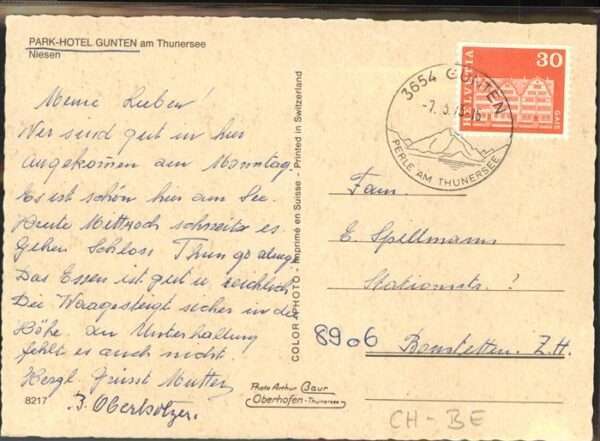 PARK-HOTEL GUNTEN am Thunersee
Niesen
Meine Lieben!
Wir sind gut in hier
angekommen am Monntag.
Es ist schön hier am See.
Heute Mittwoch schneite es.
Gehen Schloss Thun go
Das Essen ist gut u. reichlich
Die Waage steigt sicher in die
Höhe. An Unterhaltung
fehlt es auch nicht.
Herzl. Grüsst Mutter
B. Oberholzer.
8217
COLOR APHOTO - Imprimé en Suisse - Printed in Switzerland
3654 GUNTEN
PERLE AM THUNERSEE
HELVETIA
30
GAIS
Fam.
E. Spillmann
Stationsstr. ?
8906 Bonstetten Z.H.
Photo Arthur Baur
Oberhofen - Thunersee
CH - BE